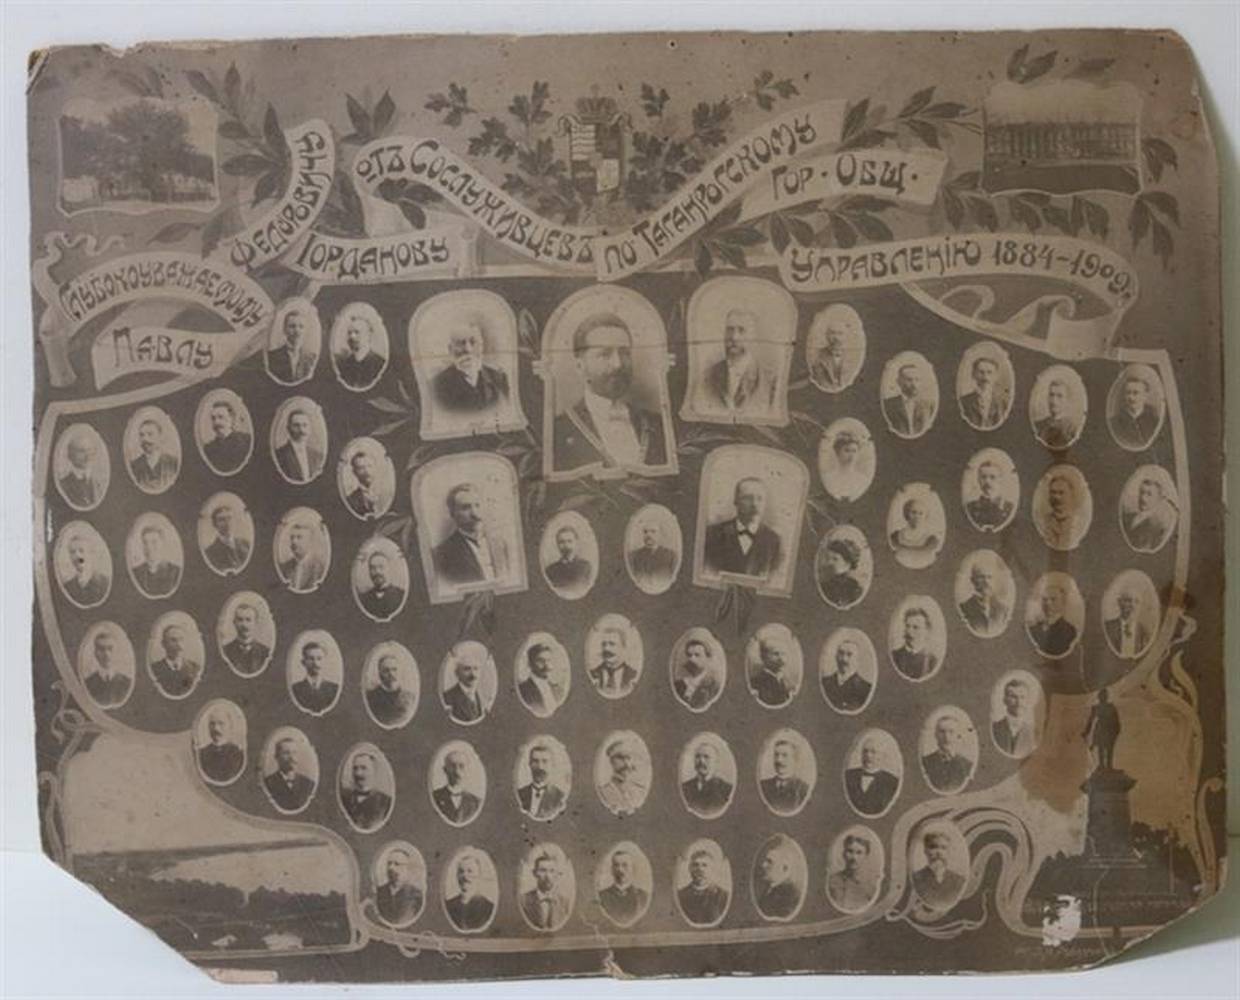 Глубокоуважаемому
Павлу
Федоровичу
Іорданову
отъ Сослуживцевъ по Таганрогскому
Гор. Общ.
Управленію 1884-1909г.